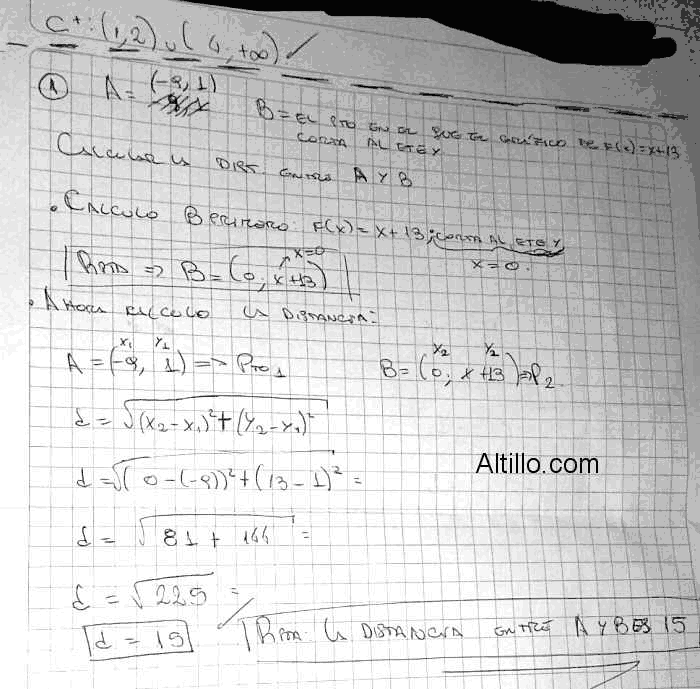 C+: (1,2) ∪ (4, +∞) ✓
① A = (-9, 1)
B = EL PTO EN EL QUE EL GRÁFICO DE F(x) = x+13
CORTA AL EJE Y
CALCULAR LA DIST. ENTRE A Y B
• CALCULO B PRIMERO: F(x) = x + 13; CORTA AL EJE Y
x=0
x=0.
RPTA ⇒ B = (0; x+13)
• AHORA CALCULO LA DISTANCIA:
x₁ y₁ x₂ y₂
A = (-9, 1) ⇒ PTO 1 B = (0; x+13) ⇒ P2
d = √(x₂-x₁)²+(y₂-y₁)²
d = √(0-(-9))²+(13-1)² =
Altillo.com
d = √81 + 144 =
d = √225 =
d = 15 ✓ RPTA: LA DISTANCIA ENTRE A Y B ES 15